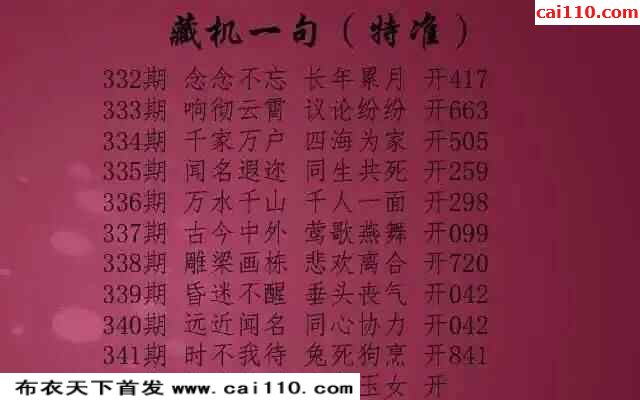 cai110.com
藏机一句（特准）
332期 念念不忘 长年累月 开417
333期 响彻云霄 议论纷纷 开663
334期 千家万户 四海为家 开505
335期 闻名遐迩 同生共死 开259
336期 万水千山 千人一面 开298
337期 古今中外 莺歌燕舞 开099
338期 雕梁画栋 悲欢离合 开720
339期 昏迷不醒 垂头丧气 开042
340期 远近闻名 同心协力 开042
341期 时不我待 兔死狗烹 开841
玉女 开
布衣天下首发 www.cai110.com